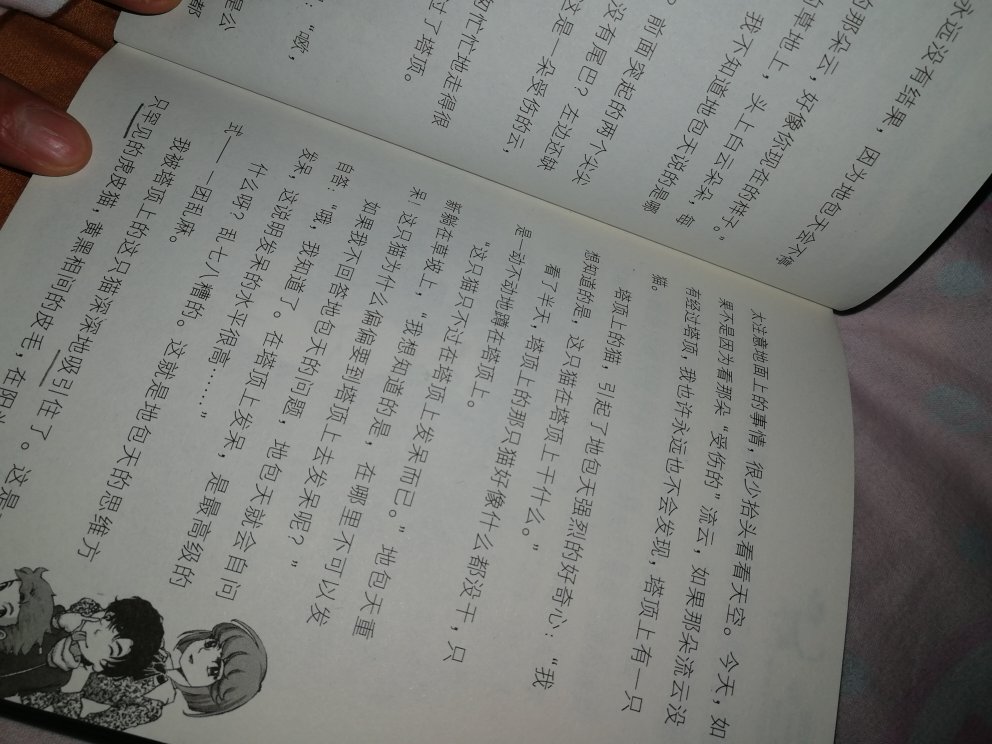 永远没有结果，因为地包天会不
的那朵云，好像你现在的样子。”
的草地上，头上白云朵朵，
我不知道地包天说的是哪
前面突起的两个尖尖
没有尾巴？左边这缺
这是一朵受伤的云，
忙忙地走得很
过了塔顶。
：“唉，
是么
都
太注意地面上的事情，很少抬头看看天空。今天，如
果不是因为看那朵“受伤的”流云，如果那朵流云没
有经过塔顶，我也许永远也不会发现，塔顶上有一只
猫。
塔顶上的猫，引起了地包天强烈的好奇心：“我
想知道的是，这只猫在塔顶上干什么。”
看了半天，塔顶上的那只猫好像什么都没干，只
是一动不动地蹲在塔顶上。
“这只猫只不过在塔顶上发呆而已。”地包天重
新躺在草坡上，“我想知道的是，在哪里不可以发
呆，这只猫为什么偏偏要到塔顶上去发呆呢？”
如果我不回答地包天的问题，地包天就会自问
自答：“哦，我知道了。在塔顶上发呆，是最高级的
发呆，这说明发呆的水平很高……”
什么呀？乱七八糟的。这就是地包天的思维方
式——一团乱麻。
我被塔顶上的这只猫深深地吸引住了。这是
只罕见的虎皮猫，黄黑相间的皮毛，在阳